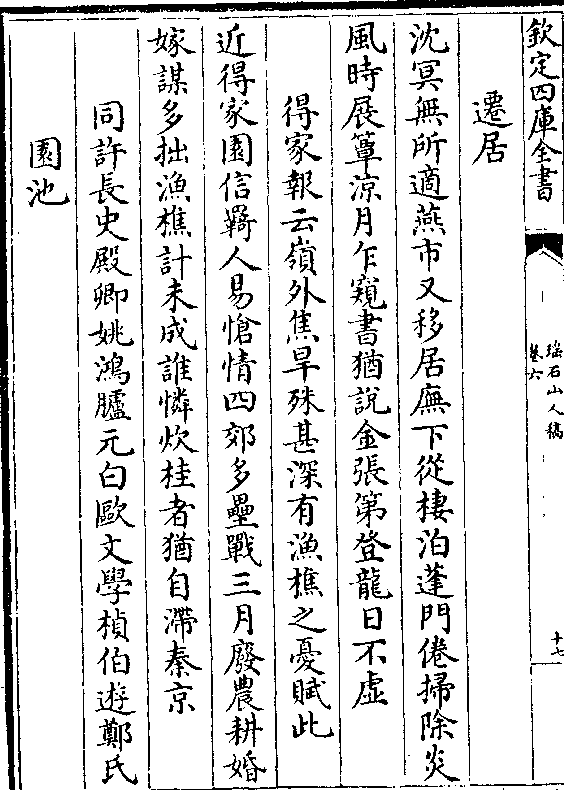 欽定四庫全書
瑤石山人稿
卷六
十七
遷居
沈冥無所適燕市又移居廡下從棲泊蓬門倦掃除炎
風時展簟涼月乍窺書猶說金張第登龍日不虛
得家報云嶺外焦旱殊甚深有漁樵之憂賦此
近得家園信羇人易愴情四郊多壘戰三月廢農耕婚
嫁謀多拙漁樵計未成誰憐炊桂者猶自滯秦京
同許長史殿卿姚鴻臚元白歐文學楨伯遊鄭氏
園池